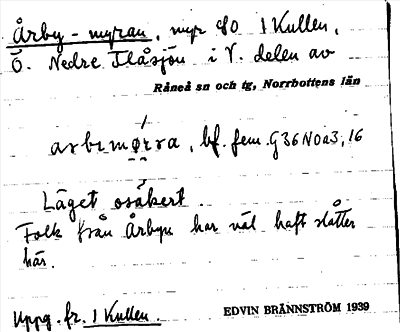 Årby-myran, myr SO 1 Kullen,
Ö. Nedre Flåsjön i V. delen av
Råneå sn och tg, Norrbottens län
bf. fem. G36NOa3,16
Läget osäkert.
Folk från Årbyn har väl haft slåtter
här.
Uppg. fr. 1 Kullen.
EDVIN BRÄNNSTRÖM 1939